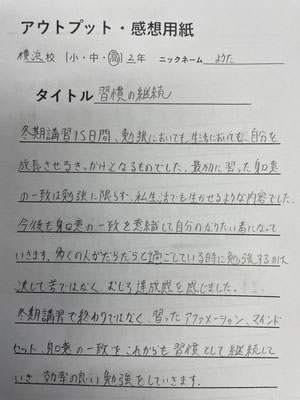 アウトプット・感想用紙
横浜校 小・中・高 2年 ニックネーム ようた
タイトル 習慣の継続
冬期講習15日間、勉強においても、生活においても、自分を
成長させるきっかけとなるものでした。最初に習った身口意
の一致は勉強に限らず、私生活でも生かせるような内容でした。
今後も身口意の一致を意識して自分のなりたい者になって
いきます。多くの人がだらだらと過ごしている時に勉強するのは
決して苦ではなく、むしろ達成感を感じました。
冬期講習で終わりではなく、習ったアファメーション、マインド
セット、身口意の一致をこれからも習慣として継続して
いき、効率の良い勉強をしていきます。